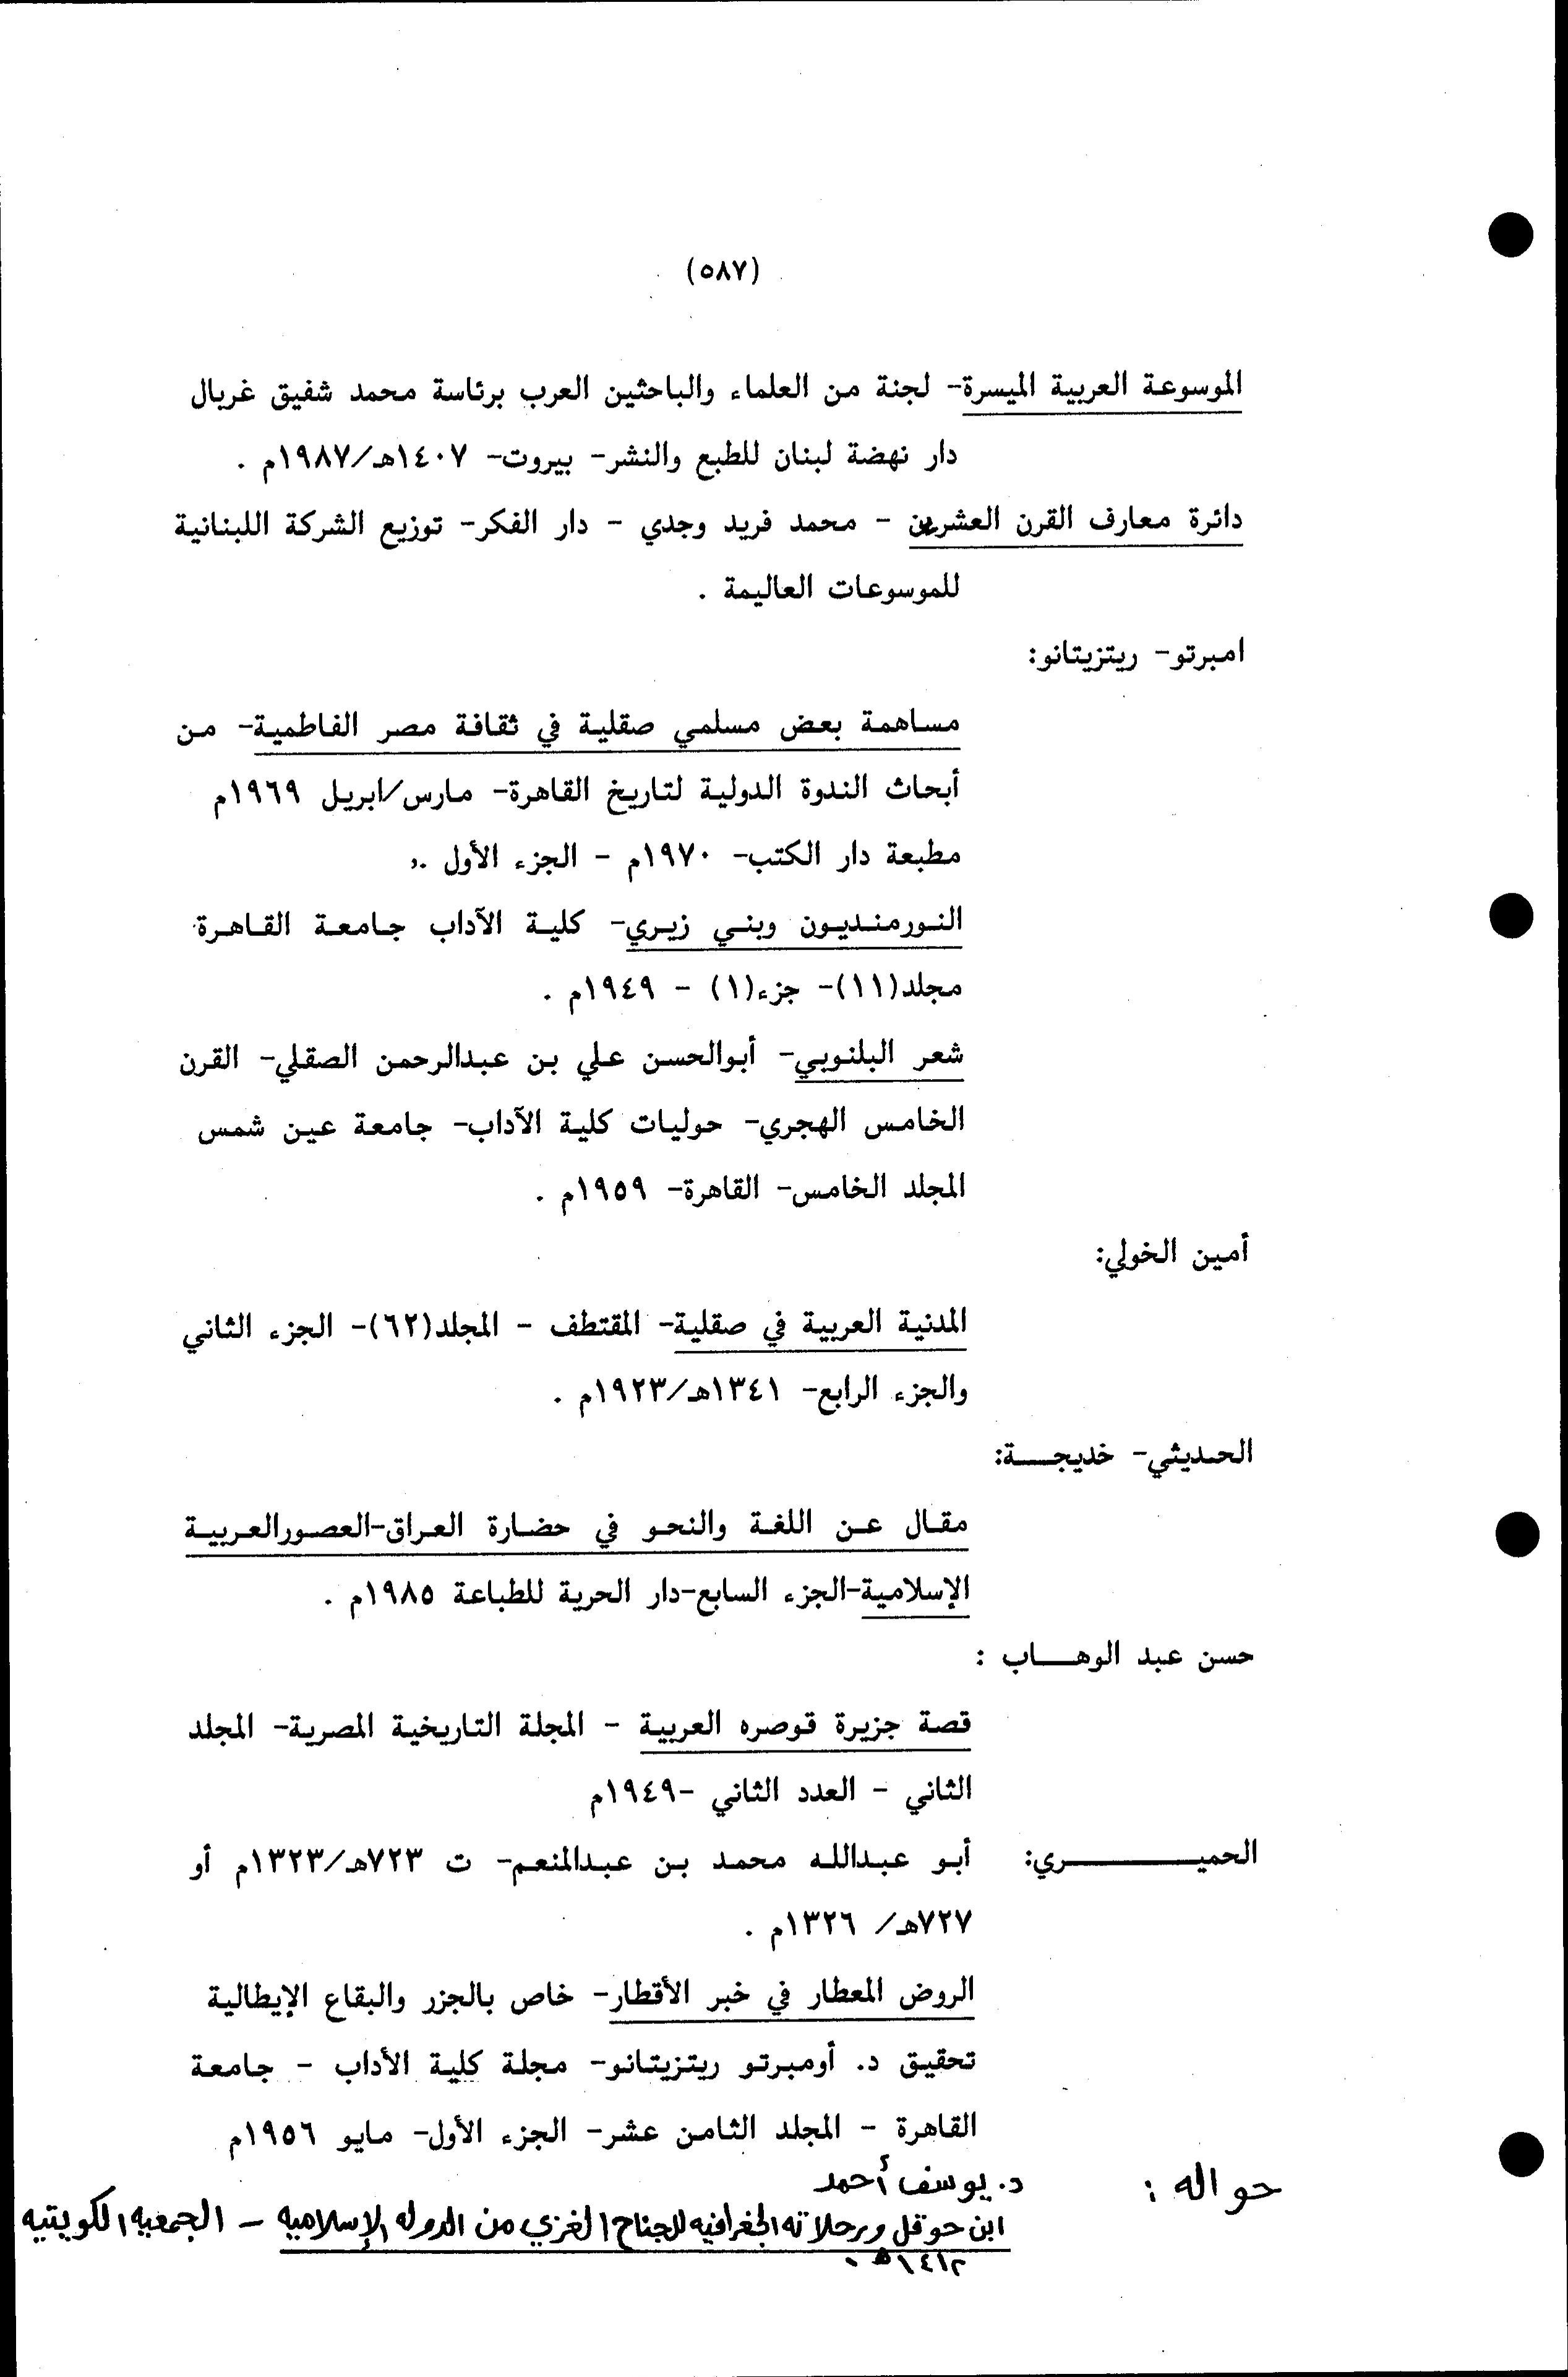 (٥٨٧)
الموسوعة العربية الميسرة- لجنة من العلماء والباحثين العرب برئاسة محمد شفيق غربال
دار نهضة لبنان للطبع والنشر- بيروت- ١٤٠٧هـ/١٩٨٧م .
دائرة معارف القرن العشرين - محمد فريد وجدي - دار الفكر- توزيع الشركة اللبنانية
للموسوعات العاليمة .
امبرتو- ريتزيتانو:
مساهمة بعض مسلمي صقلية في ثقافة مصر الفاطمية- من
أبحاث الندوة الدولية لتاريخ القاهرة- مارس/ابريل ١٩٦٩م
مطبعة دار الكتب- ١٩٧٠م - الجزء الأول .
النورمنديون وبني زيري- كلية الآداب جامعة القاهرة
مجلد(١١)- جزء(١) - ١٩٤٩م .
شعر البلنوبي- أبوالحسن علي بن عبدالرحمن الصقلي- القرن
الخامس الهجري- حوليات كلية الآداب- جامعة عين شمس
المجلد الخامس- القاهرة- ١٩٥٩م .
أمين الخولي:
المدنية العربية في صقلية- المقتطف - المجلد(٦٢)- الجزء الثاني
والجزء الرابع- ١٣٤١هـ/١٩٢٣م .
الحديثي- خديجـــة:
مقال عن اللغة والنحو في حضارة العراق-العصورالعربية
الإسلامية-الجزء السابع-دار الحرية للطباعة ١٩٨٥م .
حسن عبد الوهـــاب :
قصة جزيرة قوصره العربية - المجلة التاريخية المصرية- المجلد
الثاني - العدد الثاني -١٩٤٩م
الحميـــــــري: أبو عبدالله محمد بن عبدالمنعم- ت ٧٢٣هـ/١٣٢٣م أو
٧٢٧هـ/ ١٣٢٦م .
الروض المعطار في خبر الأقطار- خاص بالجزر والبقاع الإيطالية
تحقيق د. أومبرتو ريتزيتانو- مجلة كلية الأداب - جامعة
القاهرة - المجلد الثامن عشر- الجزء الأول- مايو ١٩٥٦م
حواله : د. يوسف أحمد
ابن حوقل ورحلاته الجغرافيه للجناح الغزي من الدوله الإسلاميه - الجمعيه الكويتيه
١٤١٢هـ .